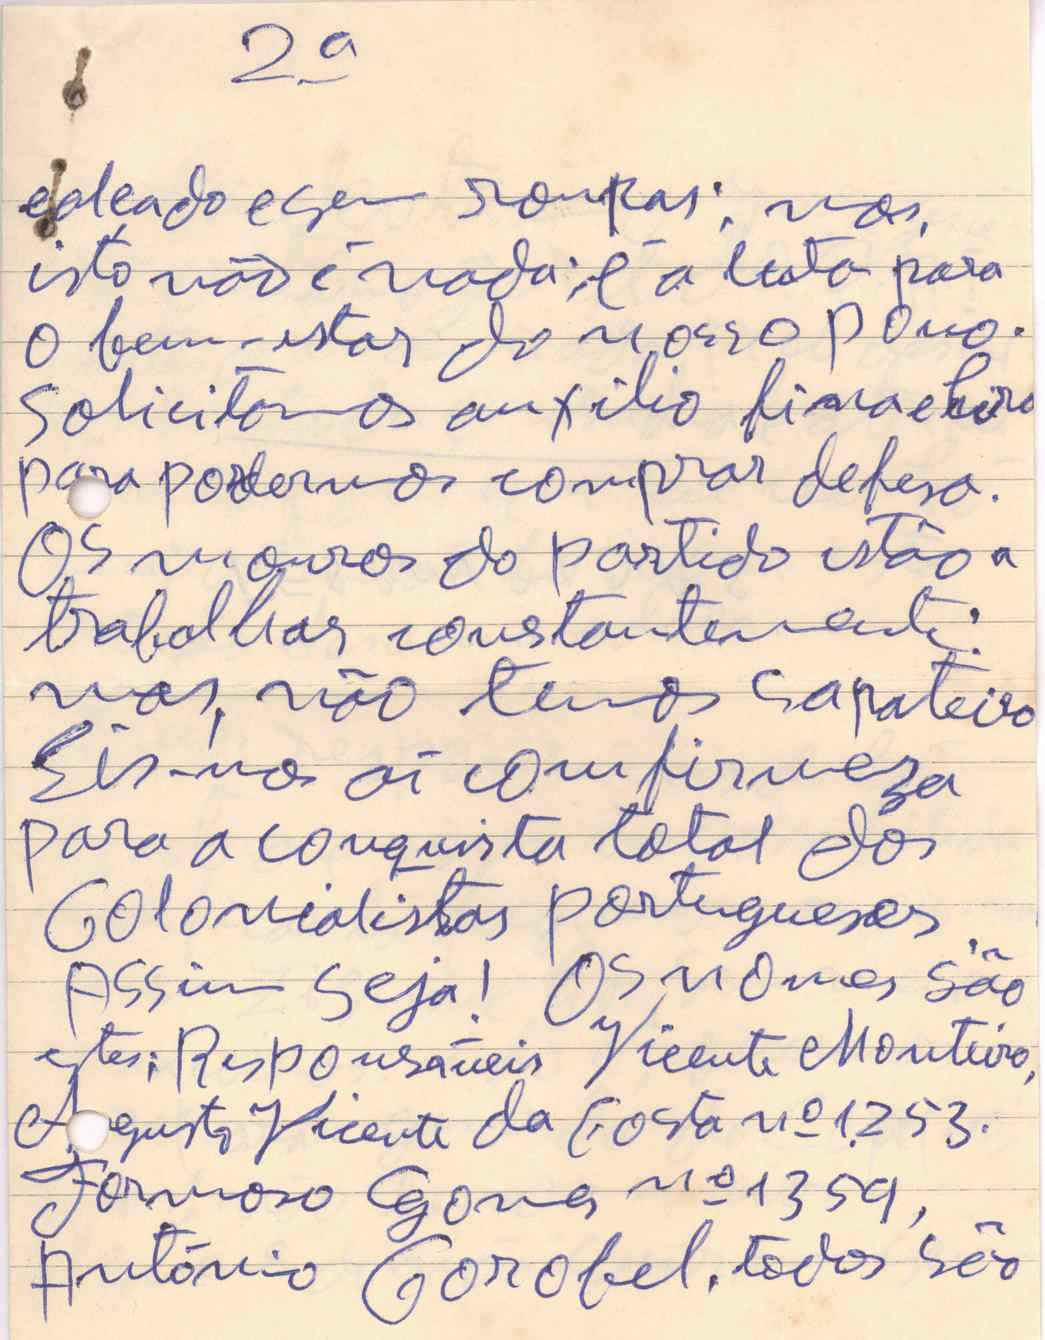 2ª
e sem roupas; mas,
isto não é nada; é a luta para
o bem-estar do nosso povo.
Solicitamos auxílio
para podermos comprar defesa.
Os do partido estão a
trabalhar constantemente;
mas, não temos sapateiro
Eis-nos aí com firmeza
para a conquista total dos
Colonialistas portugueses
Assim seja! Os nomes são
estes; Responsáveis Vicente Monteiro,
Augusto Vicente da Costa nº 1253.
Formoso Gomes nº 1359,
António todos são